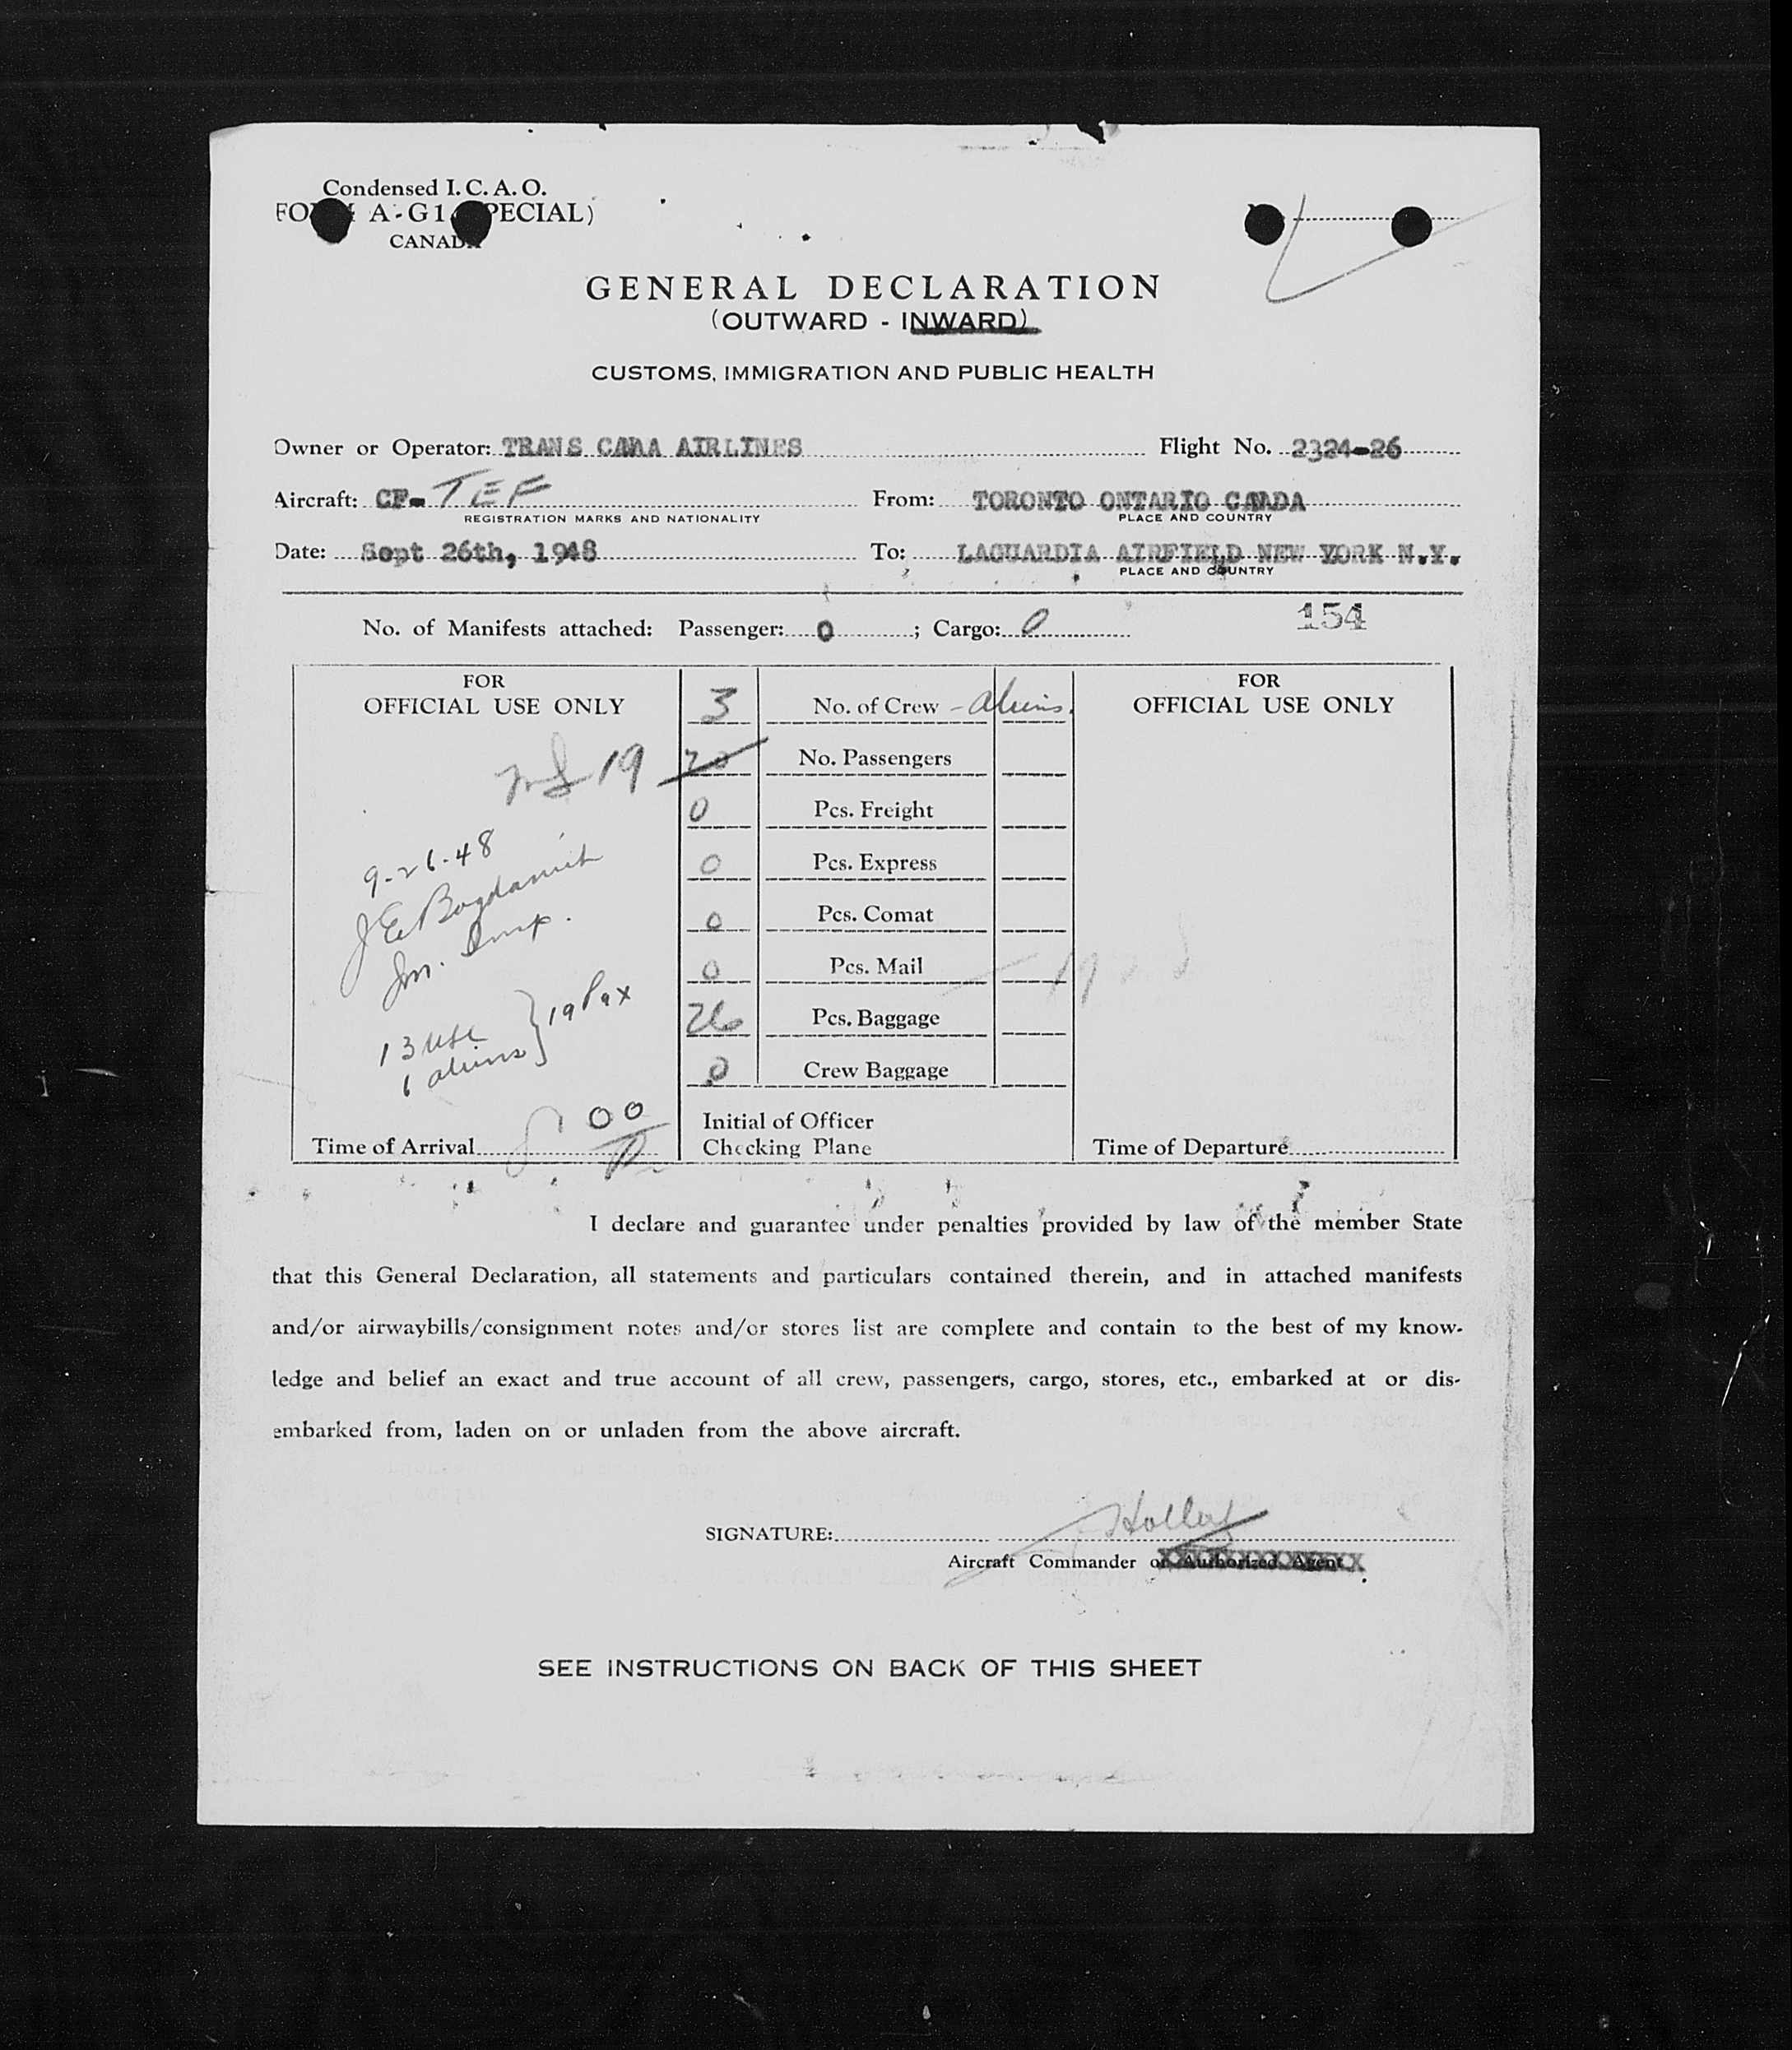 Condensed I.C.A.O.
FORM A-G1 (SPECIAL)
CANADA
GENERAL DECLARATION
(OUTWARD - INWARD)
CUSTOMS, IMMIGRATION AND PUBLIC HEALTH
Owner or Operator: TRANS CANA AIRLINES Flight No. 2324-26
Aircraft: CF-TEF From: TORONTO ONTARIO CANADA
REGISTRATION MARKS AND NATIONALITY PLACE AND COUNTRY
Date: Sept 26th, 1948 To: LAGUARDIA AIRFIELD NEW YORK N.Y.
PLACE AND COUNTRY
No. of Manifests attached: Passenger: 0 ; Cargo: 0 154
FOR OFFICIAL USE ONLY
3 No. of Crew - aliens.
19 20 No. Passengers
0 Pcs. Freight
0 Pcs. Express
0 Pcs. Comat
0 Pcs. Mail
26 Pcs. Baggage
0 Crew Baggage
9-26-48
J E Bogdanich
Imm. Insp.
13 USC
6 aliens } 19 Pax
Time of Arrival 00
Initial of Officer
Checking Plane
FOR OFFICIAL USE ONLY
Time of Departure
I declare and guarantee under penalties provided by law of the member State
that this General Declaration, all statements and particulars contained therein, and in attached manifests
and/or airwaybills/consignment notes and/or stores list are complete and contain to the best of my know-
ledge and belief an exact and true account of all crew, passengers, cargo, stores, etc., embarked at or dis-
embarked from, laden on or unladen from the above aircraft.
SIGNATURE:
Aircraft Commander or Authorized Agent
SEE INSTRUCTIONS ON BACK OF THIS SHEET